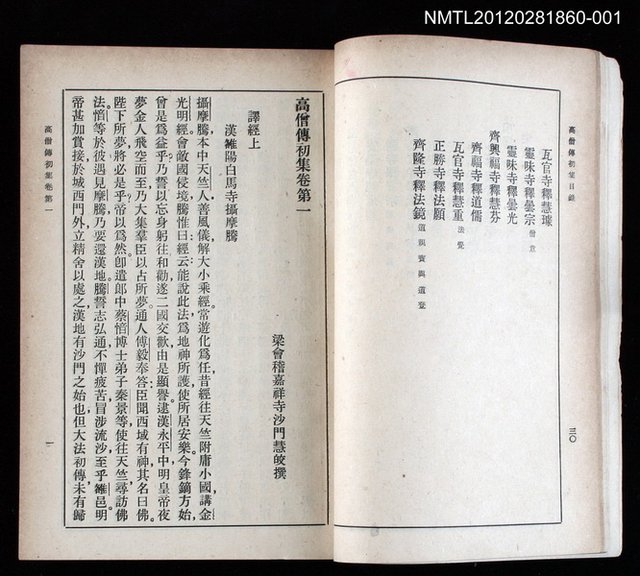 NMTL20120281860-001
高僧傳初集目錄
瓦官寺釋慧璩
靈味寺釋曇宗 僧意
靈味寺釋曇光
齊興福寺釋慧芬
齊福寺釋道儒
瓦官寺釋慧重 法覺
正勝寺釋法願
齊隆寺釋法鏡 道親寶興道登
三〇
高僧傳初集卷第一
梁會稽嘉祥寺沙門慧皎撰
譯經上
漢雒陽白馬寺攝摩騰
攝摩騰本中天竺人善風儀解大小乘經常遊化為任昔經往天竺附庸小國講金
光明經會敵國侵境騰惟曰經云能說此法為地神所護使所居安樂今鋒鏑方始
曾是為益乎乃誓以忘身躬往和勸遂二國交歡由是顯譽逮漢永平中明皇帝夜
夢金人飛空而至乃大集羣臣以占所夢通人傅毅奉答臣聞西域有神其名曰佛
陛下所夢將必是乎帝以為然卽遣郎中蔡愔博士弟子秦景等使往天竺尋訪佛
法愔等於彼遇見摩騰乃要還漢地騰誓志弘通不憚疲苦冒涉流沙至乎雒邑明
帝甚加賞接於城西門外立精舍以處之漢地有沙門之始也但大法初傳未有歸
高僧傳初集卷第一
一